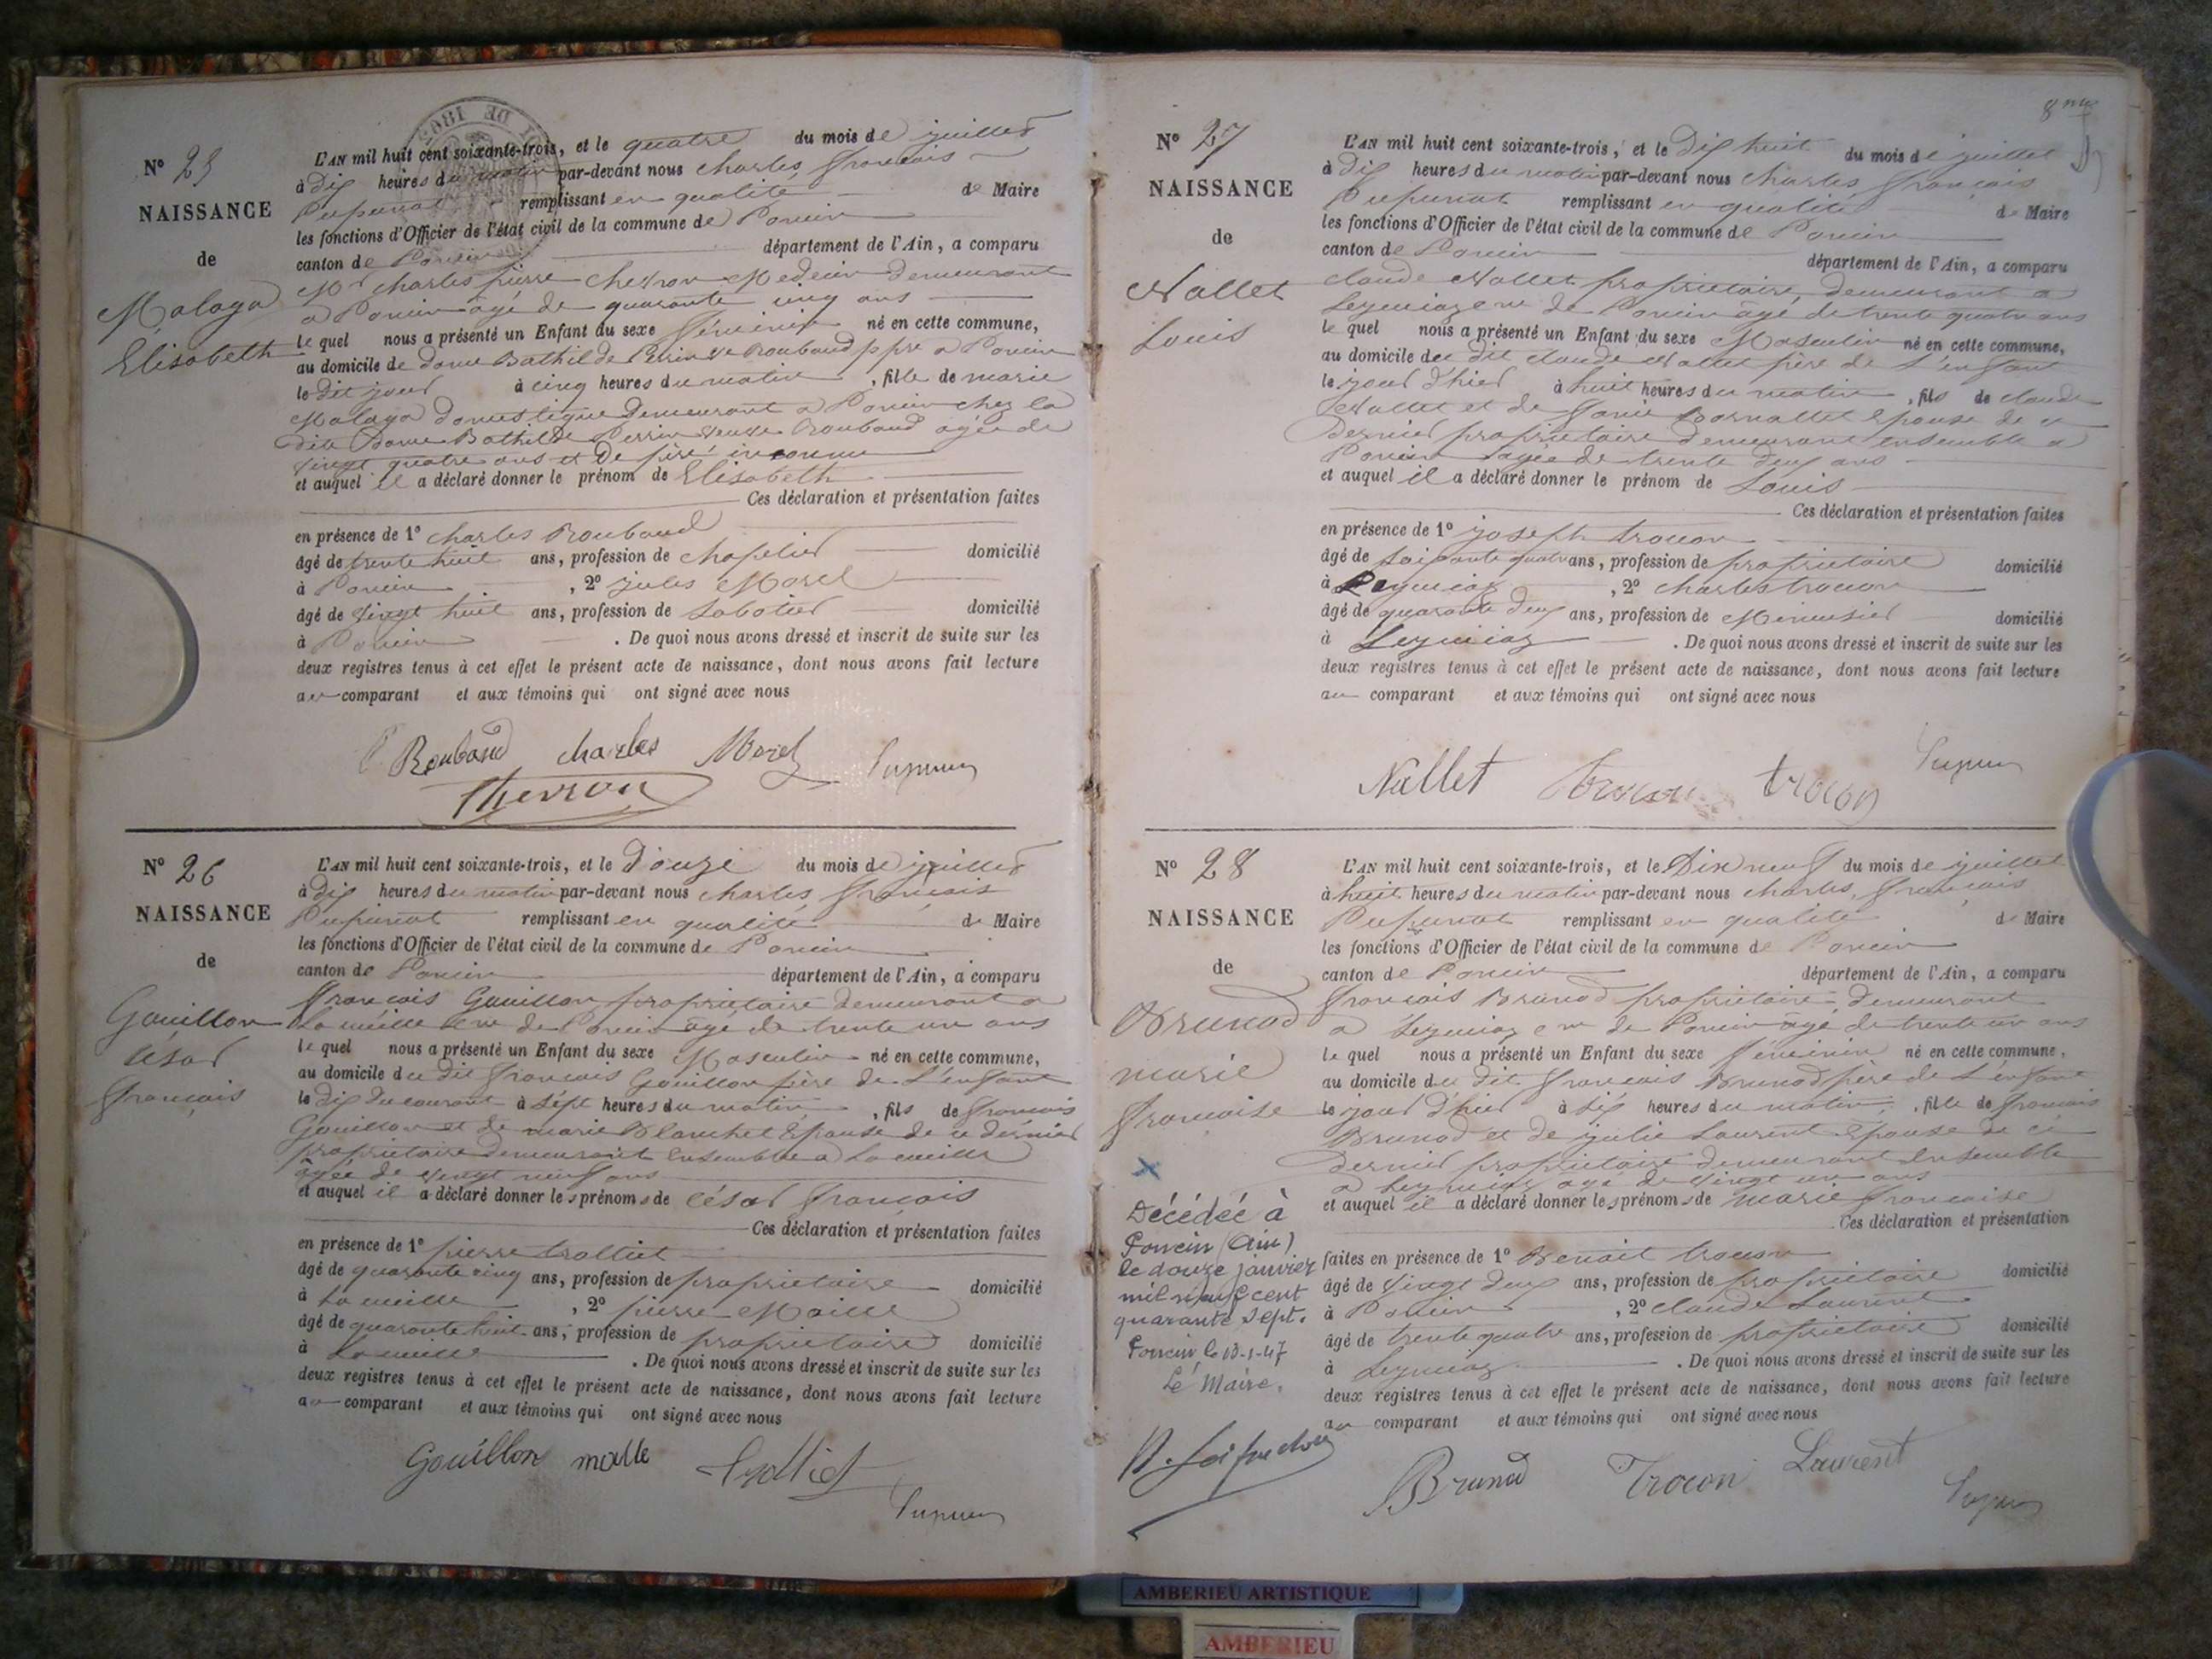 N° 25
NAISSANCE
de
Malaga
Elisabeth
L'AN mil huit cent soixante-trois, et le quatre du mois de juillet
à dix heures du matin par-devant nous Charles François
Pupunat remplissant en qualité de Maire
les fonctions d'Officier de l'état civil de la commune de Poncin
canton de Poncin département de l'Ain, a comparu
Mr Charles pierre Chevron Medecin demeurant
a Poncin âgé de quarante cinq ans
le quel nous a présenté un Enfant du sexe féminin né en cette commune,
au domicile de dame Bathilde Perrin ve Roubaud ppre a Poncin
le dit jour à cinq heures du matin, fille de marie
Malaga domestique demeurant a Poncin chez la
dite Dame Bathilde Perrin veuve Roubaud agée de
vingt quatre ans et de père inconnu
et auquel il a déclaré donner le prénom de Elisabeth
Ces déclaration et présentation faites
en présence de 1° Charles Roubaud
âgé de trente huit ans, profession de chapelier domicilié
à Poncin, 2° jules Morel
âgé de vingt huit ans, profession de sabotier domicilié
à Poncin. De quoi nous avons dressé et inscrit de suite sur les
deux registres tenus à cet effet le présent acte de naissance, dont nous avons fait lecture
au comparant et aux témoins qui ont signé avec nous
Roubaud charles Morel Pupunat
Chevron
N° 26
NAISSANCE
de
Gouillon
César
françois
L'AN mil huit cent soixante-trois, et le douze du mois de juillet
à dix heures du matin par-devant nous Charles, François
Pupunat remplissant en qualité de Maire
les fonctions d'Officier de l'état civil de la commune de Poncin
canton de Poncin département de l'Ain, a comparu
françois Gouillon propriétaire demeurant a
la cueille cne de Poncin âgé de trente un ans
le quel nous a présenté un Enfant du sexe Masculin né en cette commune,
au domicile du dit françois Gouillon père de L'enfant
le dix du courant à sept heures du matin, fils de françois
Gouillon et de marie Blanchet Epouse de ce dernier
propriétaire demeurant Ensemble a La cueille
âgée de vingt neuf ans
et auquel il a déclaré donner les prénoms de César françois
Ces déclaration et présentation faites
en présence de 1° pierre trolliet
âgé de quarante cinq ans, profession de propriétaire domicilié
à La cueille, 2° pierre
âgé de quarante huit ans, profession de propriétaire domicilié
à La cueille. De quoi nous avons dressé et inscrit de suite sur les
deux registres tenus à cet effet le présent acte de naissance, dont nous avons fait lecture
au comparant et aux témoins qui ont signé avec nous
Gouillon trolliet
Pupunat
8me
N° 27
NAISSANCE
de
Nallet
Louis
L'AN mil huit cent soixante-trois, et le dix huit du mois de juillet
à dix heures du matin par-devant nous Charles, françois
Pupunat remplissant en qualité de Maire
les fonctions d'Officier de l'état civil de la commune de Poncin
canton de Poncin département de l'Ain, a comparu
claude Nallet propriétaire, demeurant a
Leymiaz cne de Poncin âgé de trente quatre ans
le quel nous a présenté un Enfant du sexe Masculin né en cette commune,
au domicile du dit claude Nallet père de L'enfant
le jour d'hier à huit heures du matin, fils de claude
Nallet et de Epouse de ce
dernier propriétaire demeurant ensemble a
Poncin agée de trente deux ans
et auquel il a déclaré donner le prénom de Louis
Ces déclaration et présentation faites
en présence de 1° joseph trocon
âgé de soixante quatre ans, profession de propriétaire domicilié
à Leymiaz, 2° charles trocon
âgé de quarante deux ans, profession de Menuisier domicilié
à Leymiaz. De quoi nous avons dressé et inscrit de suite sur les
deux registres tenus à cet effet le présent acte de naissance, dont nous avons fait lecture
au comparant et aux témoins qui ont signé avec nous
Nallet trocon trocon Pupunat
N° 28
NAISSANCE
de
Brunod
marie
françoise
Décédée à
Poncin (Ain)
le douze janvier
mil neuf cent
quarante sept.
Poncin le 13-1-47
Le Maire.
L'AN mil huit cent soixante-trois, et le Dix neuf du mois de juillet
à huit heures du matin par-devant nous Charles, françois
Pupunat remplissant en qualité de Maire
les fonctions d'Officier de l'état civil de la commune de Poncin
canton de Poncin département de l'Ain, a comparu
françois Brunod propriétaire, demeurant
a Leymiaz cne de Poncin âgé de trente un ans
le quel nous a présenté un Enfant du sexe féminin né en cette commune,
au domicile du dit françois Brunod père de L'enfant
le jour d'hier à six heures du matin, fille de françois
Brunod et de julie Laurent Epouse de ce
dernier propriétaire demeurant Ensemble
a Leymiaz agé de vingt un ans
et auquel il a déclaré donner les prénoms de marie françoise
Ces déclaration et présentation
faites en présence de 1° Benoit trocon
âgé de vingt deux ans, profession de propriétaire domicilié
à Poncin, 2° claude Laurent
âgé de trente quatre ans, profession de propriétaire domicilié
à Leymiaz. De quoi nous avons dressé et inscrit de suite sur les
deux registres tenus à cet effet le présent acte de naissance, dont nous avons fait lecture
au comparant et aux témoins qui ont signé avec nous
Brunod Trocon Laurent
Pupunat
AMBERIEU ARTISTIQUE
AMBERIEU